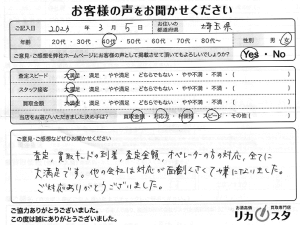 お客様の声をお聞かせください
ご記入日 2023 年 3 月 5 日 お住いの都道府県 埼玉県
年齢 20代・30代・40代・50代・60代・70代・80代～ 性別 男・女
ご意見・ご感想を弊社ホームページにお客様の声として掲載させて頂いてもよろしいでしょうか？ Yes・No
査定スピード 大満足・満足・やや満足・どちらでもない・やや不満・不満 ( )
スタッフ接客 大満足・満足・やや満足・どちらでもない・やや不満・不満 ( )
買取金額 大満足・満足・やや満足・どちらでもない・やや不満・不満 ( )
当店をお選びいただきました決め手は？ 買取金額・対応力・利便性・スピード・その他 ( )
ご意見・ご感想などぜひお聞かせください
査定、買取キットの到着、査定金額、オペレーターの方の対応、全てに
大満足です。他の会社は対応が面倒くさくて嫌になりました。
ご対応ありがとうございました。
ご協力ありがとうございました。
この度は誠にありがとうございました。
お酒高価 買取専門店
リカスタ